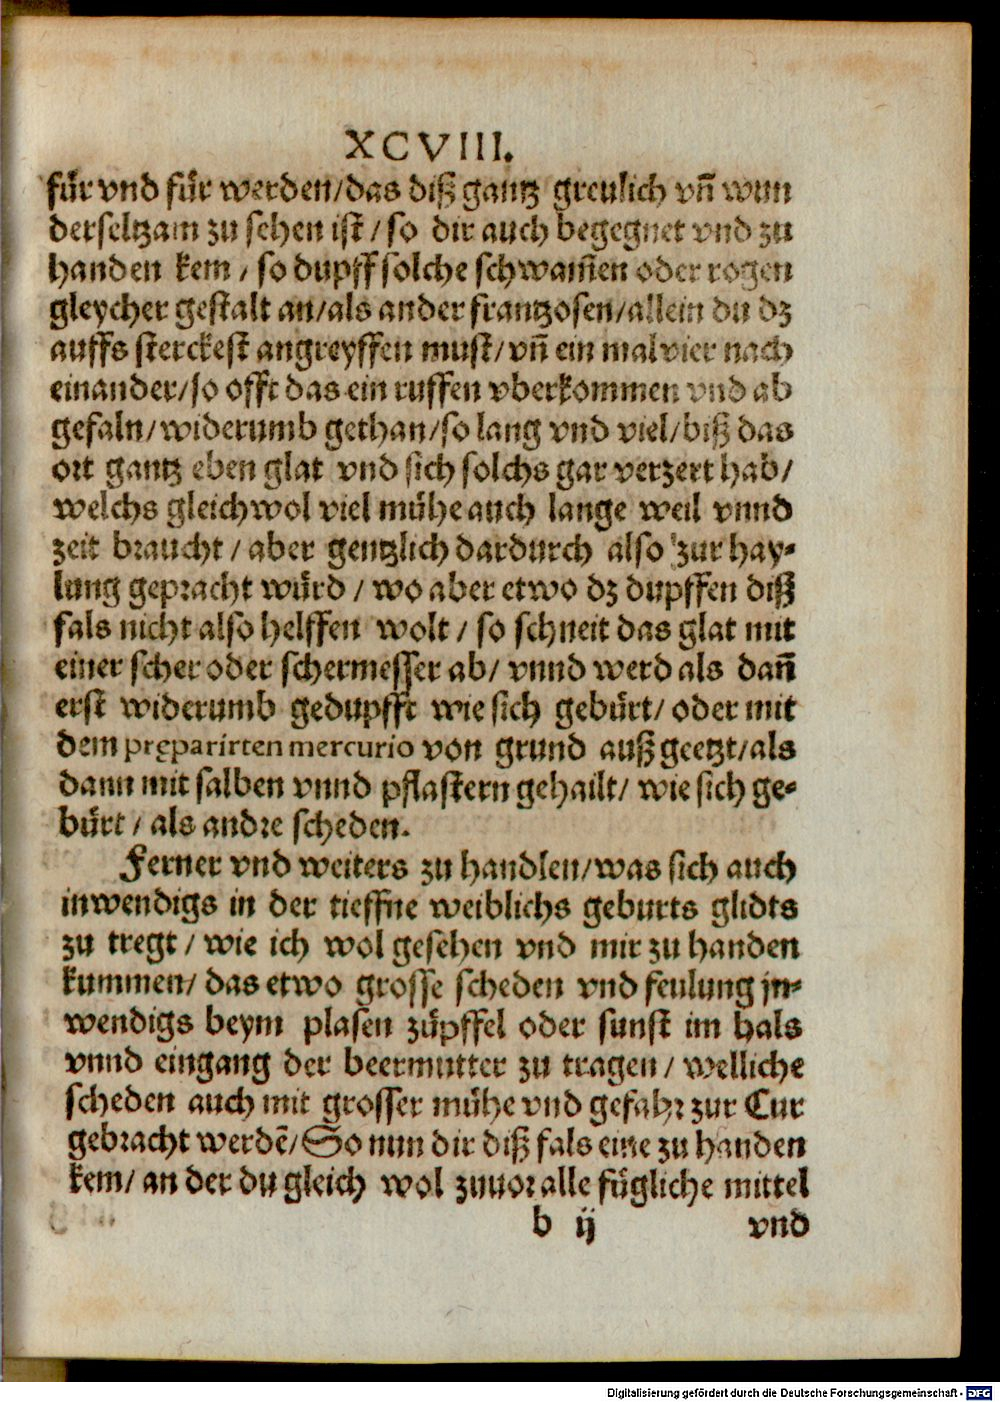 XCVIII.
für vnd für werden/das diß gantz greulich vn̄ wun
derseltzam zu sehen ist/so dir auch begegnet vnd zu
handen kem/so dupff solche schwam̄en oder rogen
gleycher gestalt an/als ander frantzosen/allein du dz
auffs sterckest angreyffen must/vn̄ ein mal vier nach
einander/so offt das ein ruffen vberkommen vnd ab
gefaln/widerumb gethan/so lang vnd viel/biß das
ort gantz eben glat vnd sich solchs gar verzert hab/
welchs gleichwol viel mühe auch lange weil vnnd
zeit braucht/aber gentzlich dardurch also zur hay-
lung gepracht würd/wo aber etwo dz dupffen diß
fals nicht also helffen wolt/so schneit das glat mit
einer scher oder schermesser ab/vnnd werd als dan̄
erst widerumb gedupfft wie sich gebürt/oder mit
dem pręparirten mercurio von grund auß geetzt/als
dann mit salben vnnd pflastern gehailt/wie sich ge-
bürt/als andre scheden.
Ferner vnd weiters zu handlen/was sich auch
inwendigs in der tieffne weiblichs geburts glidts
zu tregt/wie ich wol gesehen vnd mir zu handen
kummen/das etwo grosse scheden vnd feulung jn-
wendigs beym plasen züpffel oder sunst im hals
vnnd eingang der beermutter zu tragen/welliche
scheden auch mit grosser mühe vnd gefahr zur Cur
gebracht werdē/So nun dir diß fals eine zu handen
kem/an der du gleich wol zuuor alle fügliche mittel
b ij vnd
Digitalisierung gefördert durch die Deutsche Forschungsgemeinschaft - DFG